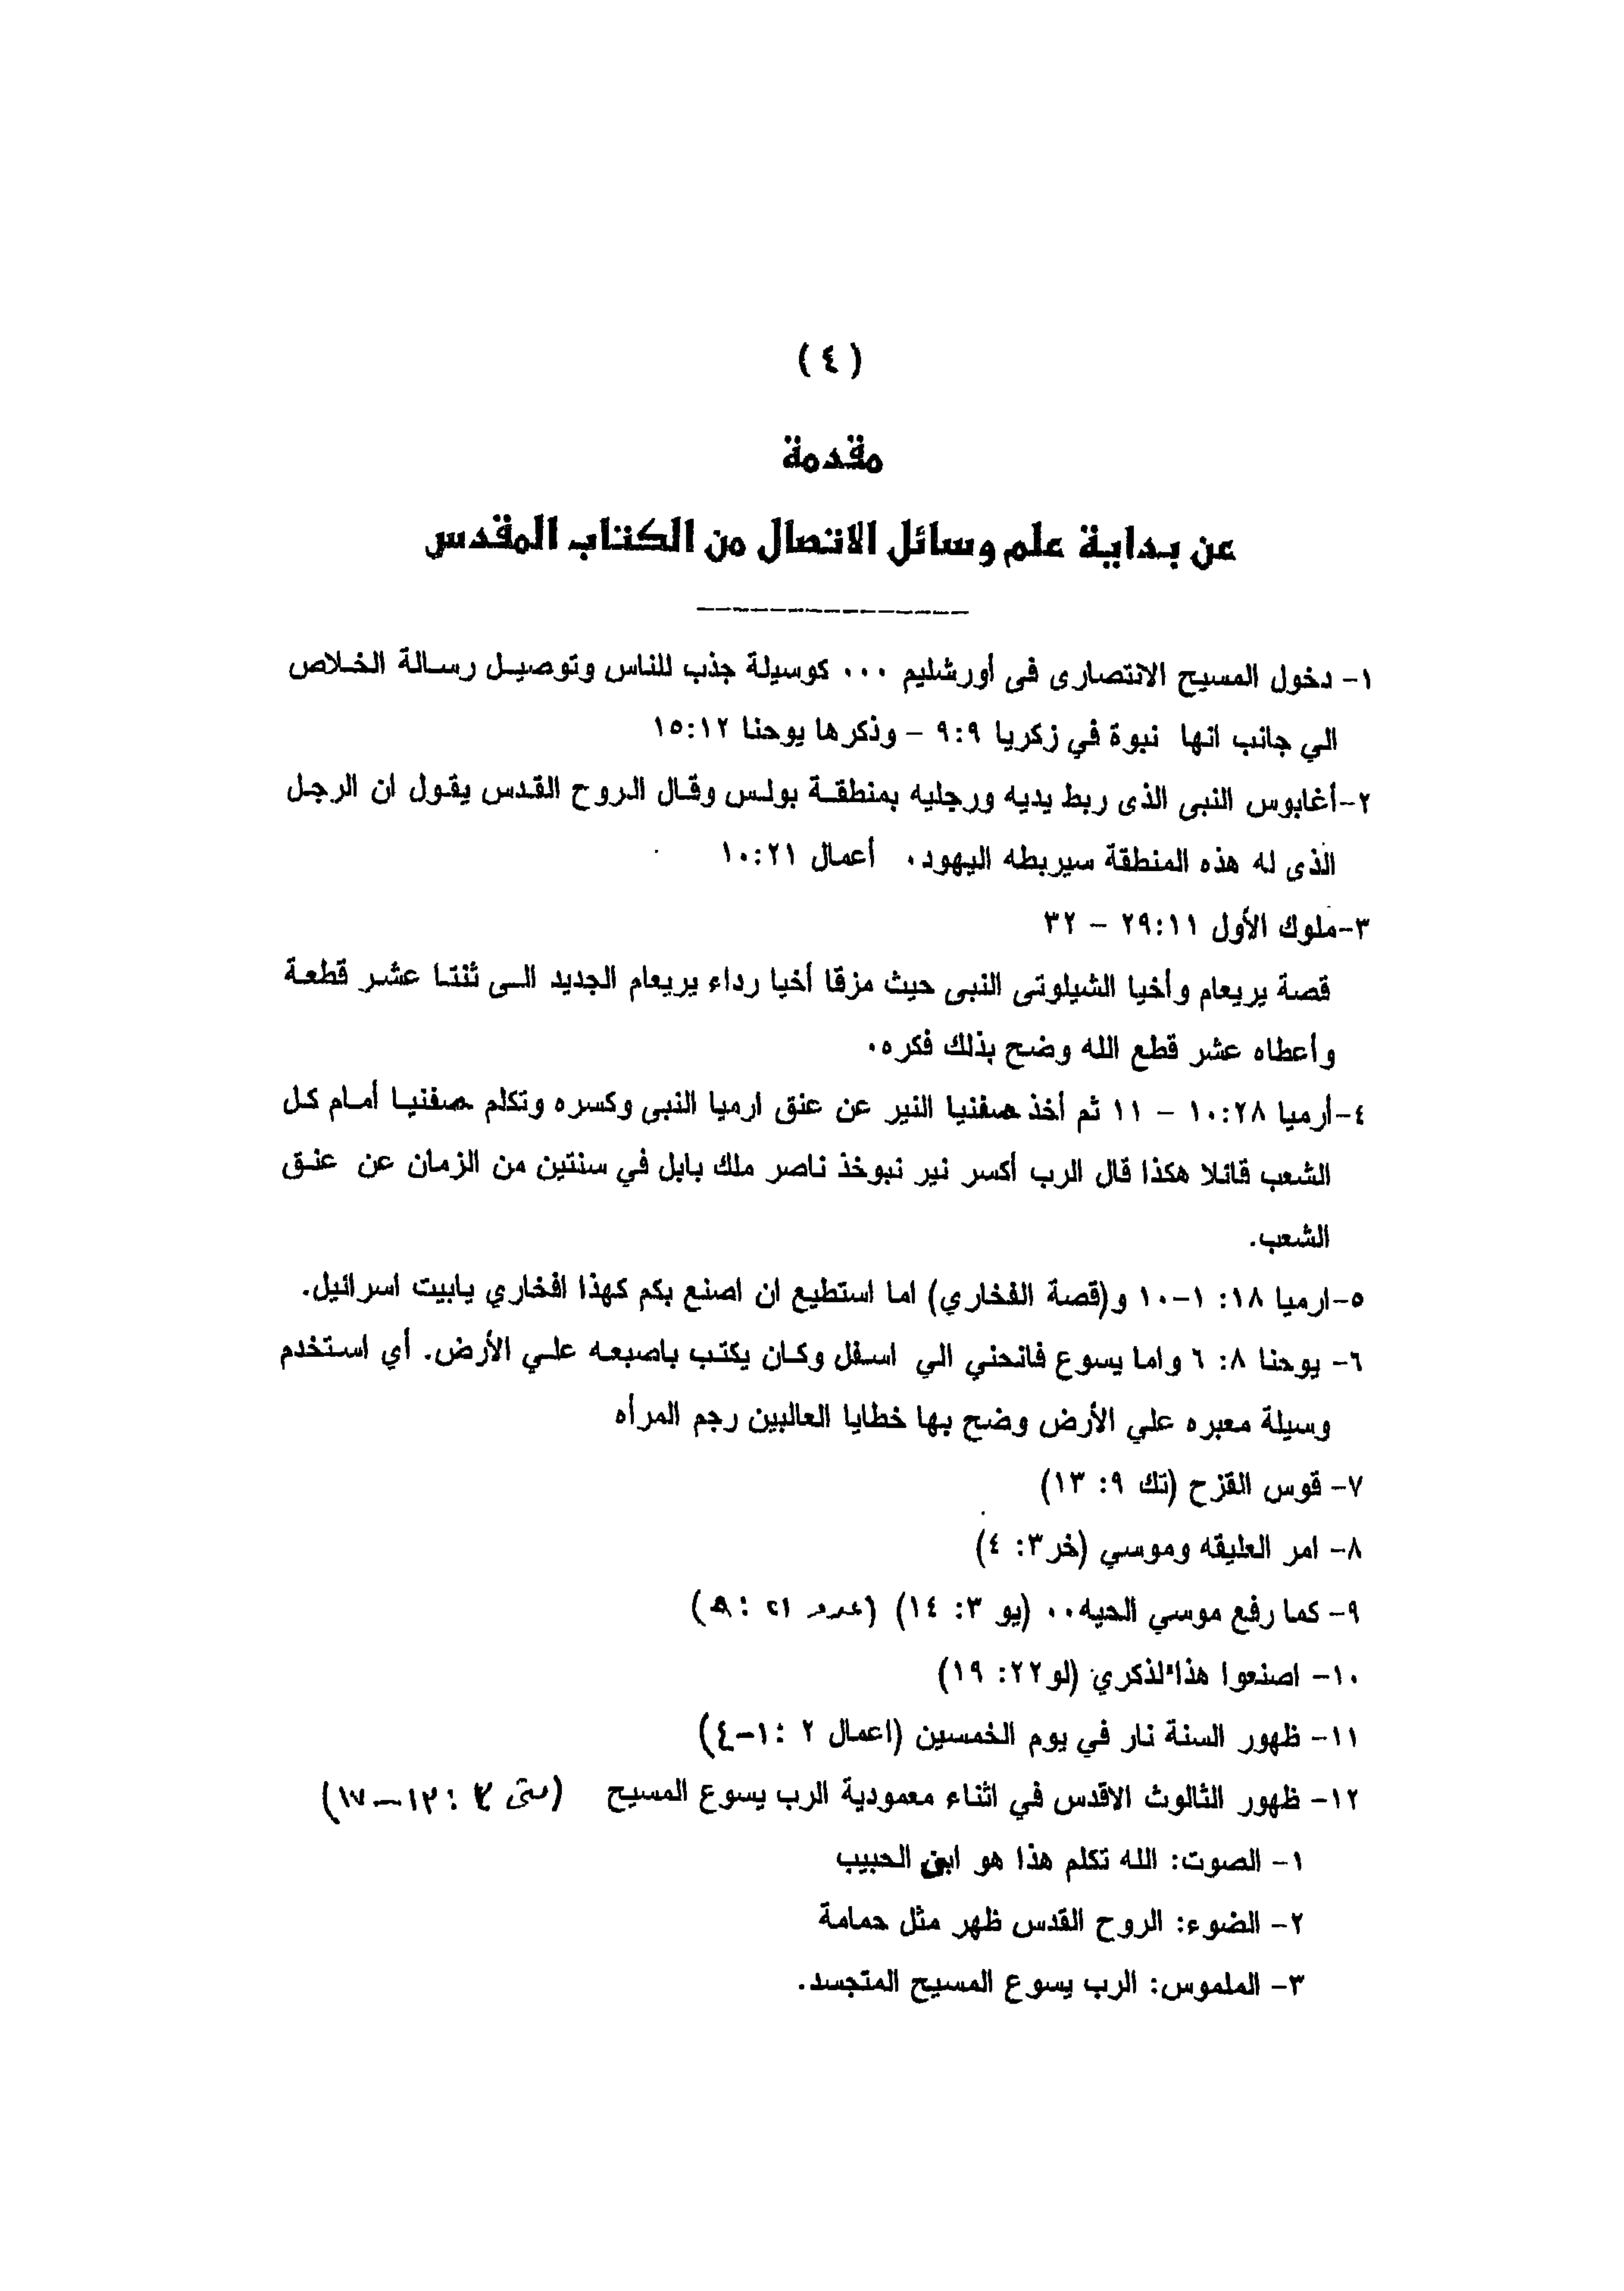 ( ٤ )
مقدمة
عن بداية علم وسائل الاتصال من الكتاب المقدس
١- دخول المسيح الانتصارى فى أورشليم ٠٠٠ كوسيلة جذب للناس وتوصيل رسالة الخلاص
الي جانب انها نبوة في زكريا ٩:٩ – وذكرها يوحنا ١٥:١٢
٢-أغابوس النبى الذى ربط يديه ورجليه بمنطقة بولس وقال الروح القدس يقول ان الرجل
الذى له هذه المنطقة سيربطه اليهود. أعمال ١٠:٢١
٣-ملوك الأول ٢٩:١١ – ٣٢
قصة يربعام وأخيا الشيلوتى النبى حيث مزقا أخيا رداء يربعام الجديد الى ثنتا عشر قطعة
وأعطاه عشر قطع الله وضح بذلك فكره.
٤-أرميا ١٠:٢٨ – ١١ ثم أخذ صفنيا النير عن عنق ارميا النبى وكسره وتكلم صفنيا أمام كل
الشعب قائلا هكذا قال الرب أكسر نير نبوخذ ناصر ملك بابل في سنتين من الزمان عن عنق
الشعب.
٥-ارميا ١٨: ١-١٠ و(قصة الفخاري) اما استطيع ان اصنع بكم كهذا افخاري يابيت اسرائيل.
٦- يوحنا ٨: ٦ واما يسوع فانحني الي اسفل وكان يكتب باصبعه علي الأرض. أي استخدم
وسيلة معبره علي الأرض وضح بها خطايا العالبين رجم المرأه
٧- قوس القزح (تك ٩: ١٣)
٨- امر العليقه وموسي (خر٣: ٤)
٩- كما رفع موسي الحيه٠٠ (يو ٣: ١٤) (عدد ٢١ : ٩)
١٠- اصنعوا هذا لذكري (لو٢٢: ١٩)
١١- ظهور السنة نار في يوم الخمسين (اعمال ٢ :١-٤)
١٢- ظهور الثالوث الاقدس في اثناء معمودية الرب يسوع المسيح (متى ٣ : ١٣-١٧)
١- الصوت: الله تكلم هذا هو ابني الحبيب
٢- الضوء: الروح القدس ظهر مثل حمامة
٣- الملموس: الرب يسوع المسيح المتجسد.